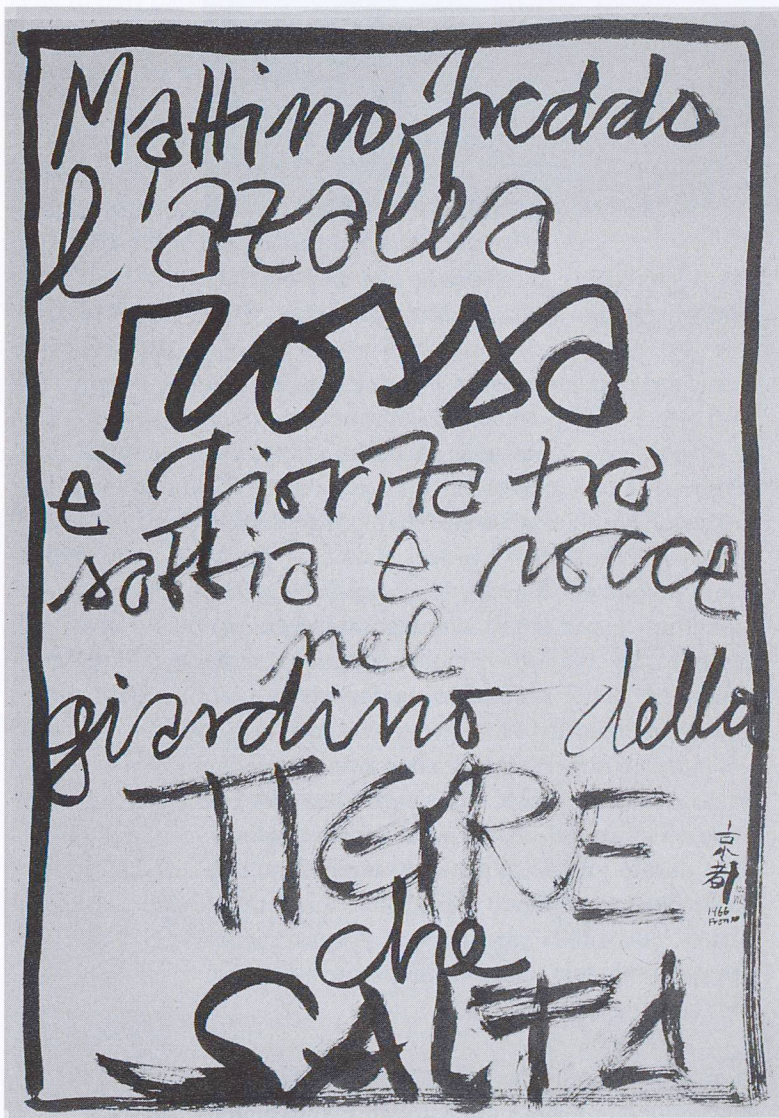 Mattino freddo
l'azalea
rossa
è fiorita tra
sabbia e rocce
nel
giardino della
TIGRE
che
SALTA
京都
1966